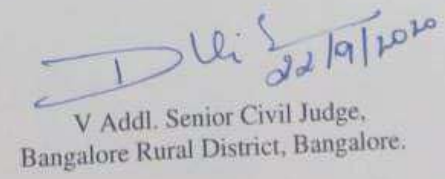 22/9/2020
V Addl. Senior Civil Judge,
Bangalore Rural District, Bangalore.